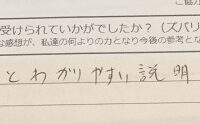 受けられていかがでしたか？（ズバリ
な感想が、私達の何よりの力となり今後の参考とな
とわかりやすい説明